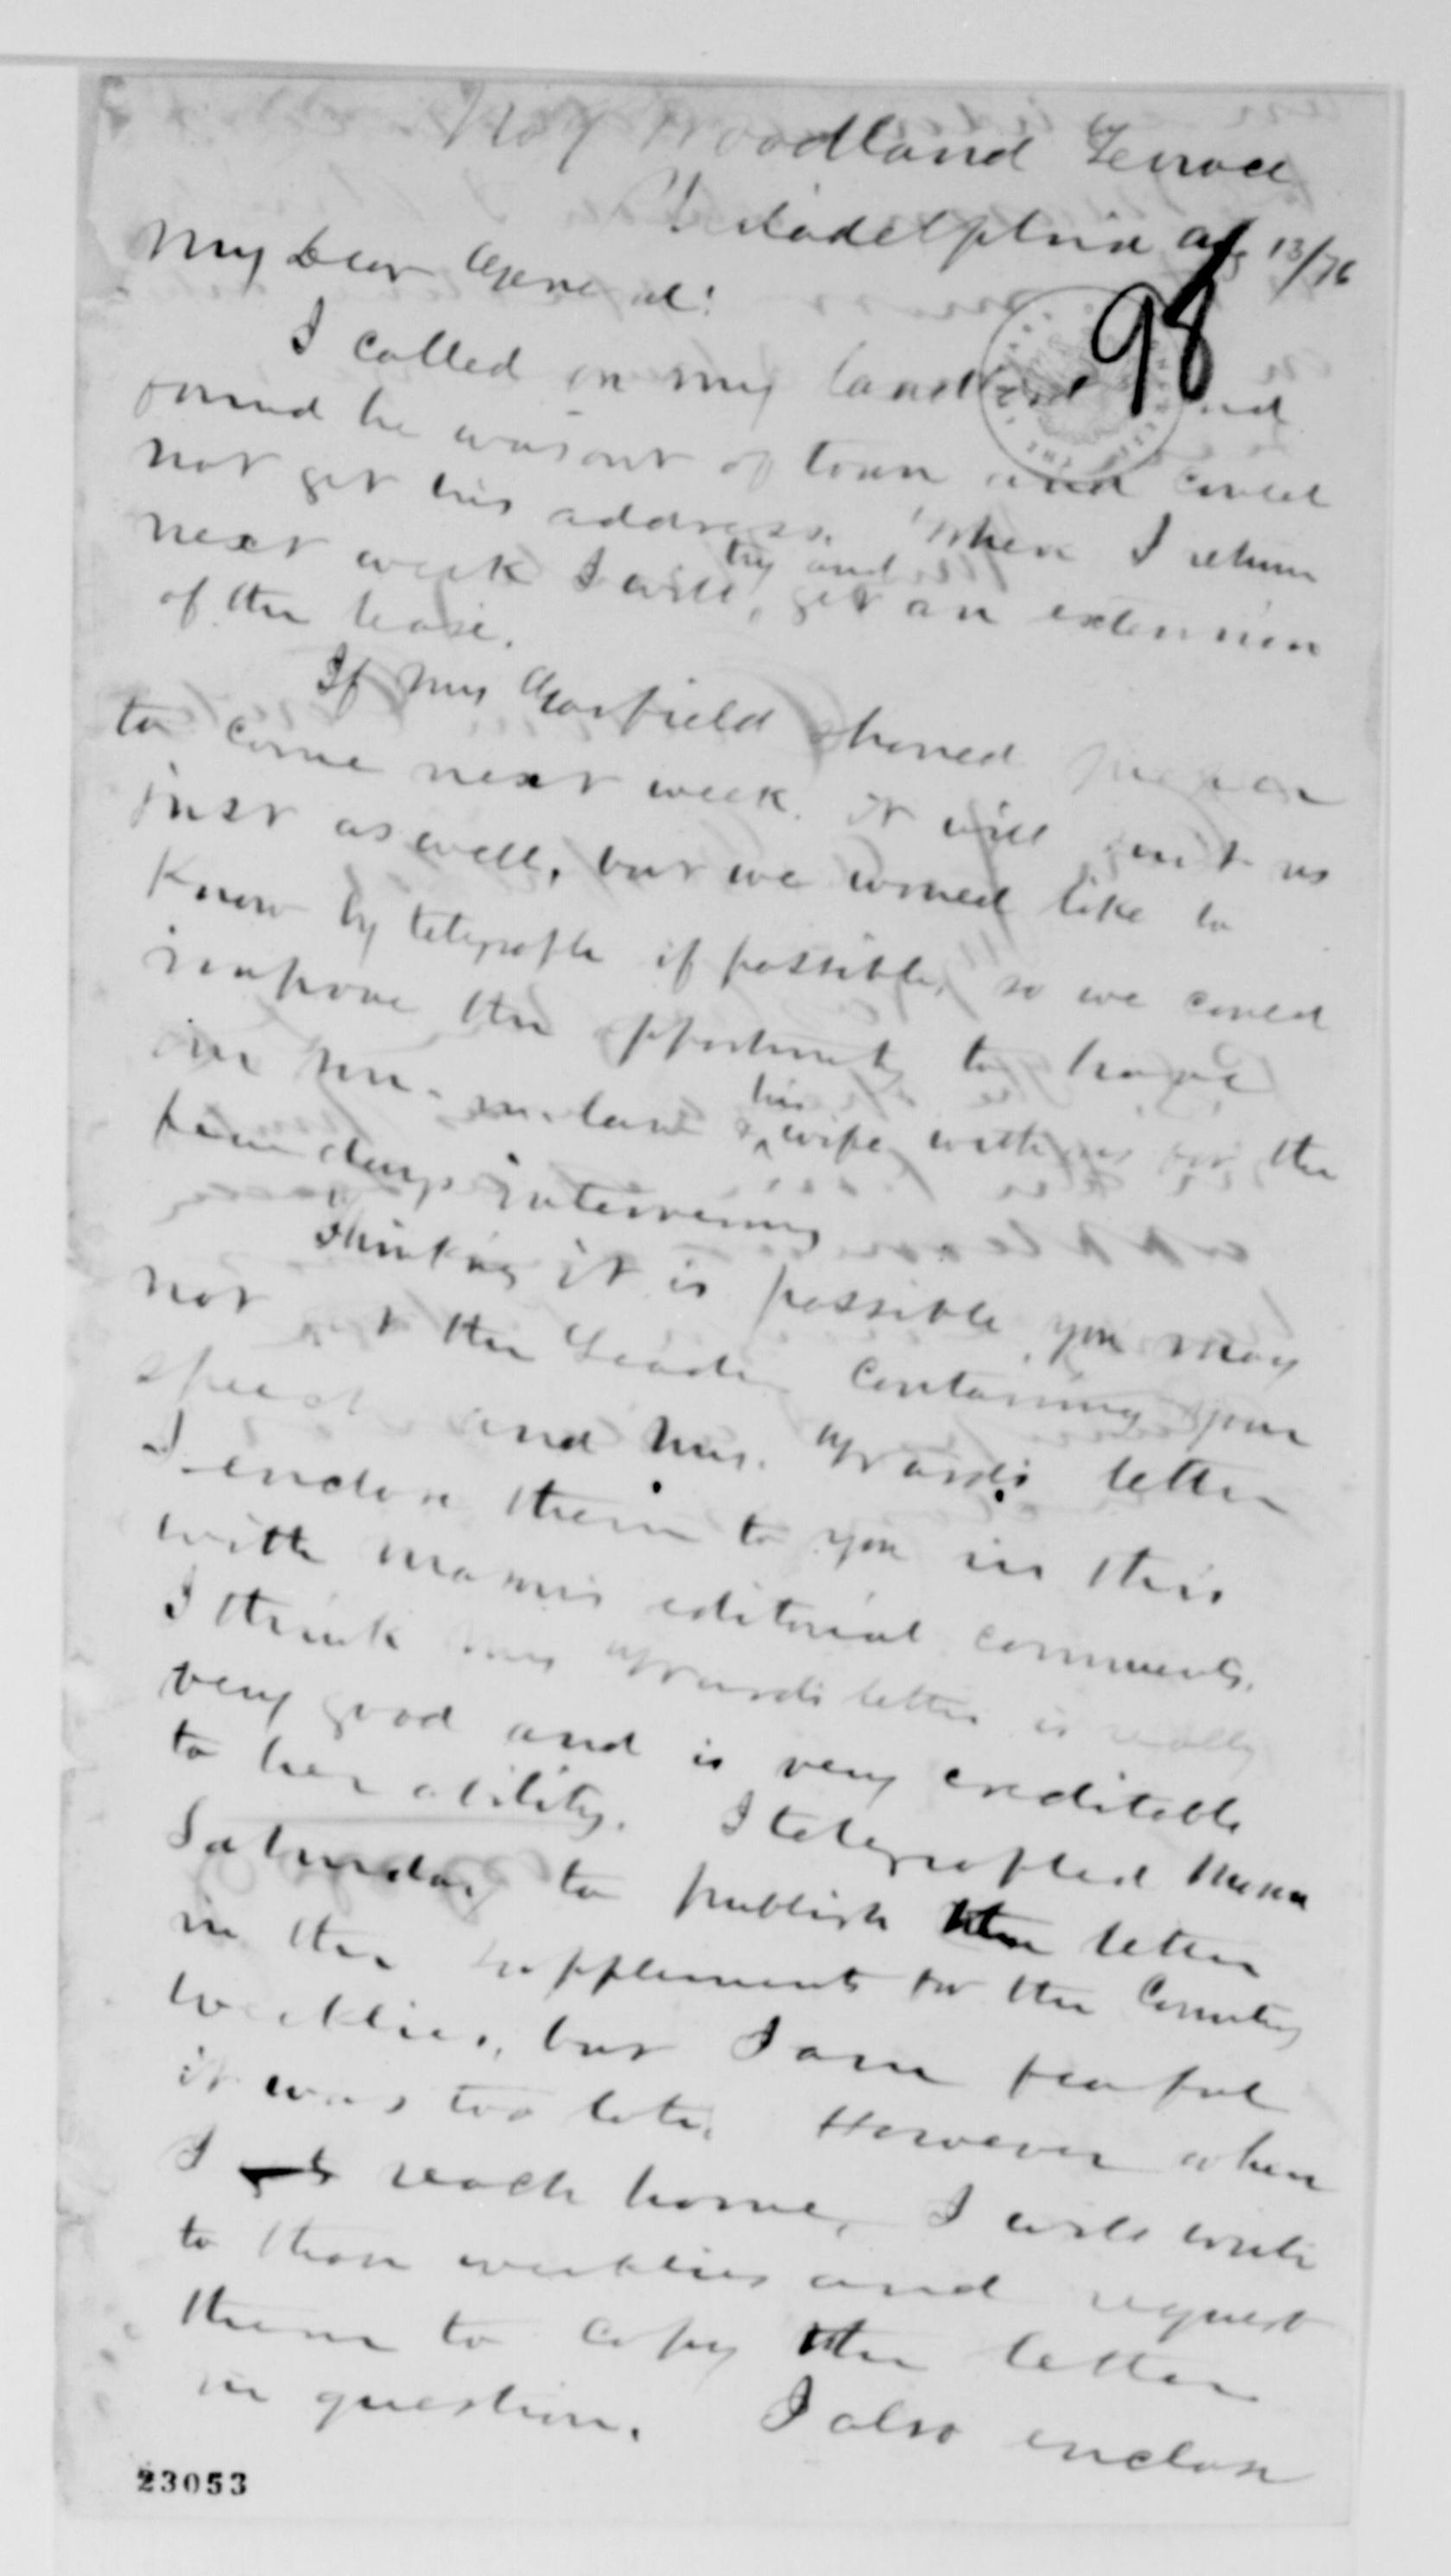 No 7 Woodland Terrace
Philadelphia Aug 13/76
My Dear General:
98
I called on my landlord and
found he was out of town and could
not get his address. When I return
next week I will, try and get an extension
of the lease.
If Mrs Garfield should
to come next week it will suit us
just as well, but we would like to
know by telegraph if possible, so we could
improve the opportunity to have
his
& wife with us for the
few days intervening
Thinking it is possible you may
not the Leader containing your
speech and Mrs. letter
I enclose them to you in this
with editorial comments.
I think Mrs letter is really
very good and is very creditable
to her ability. I telegraphed
Saturday to publish the letter
in the supplements for the County
weeklies, but I am fearful
it was too late. However when
I reach home, I will write
to those weeklies and request
them to copy the letter
in question. I also enclose
23053